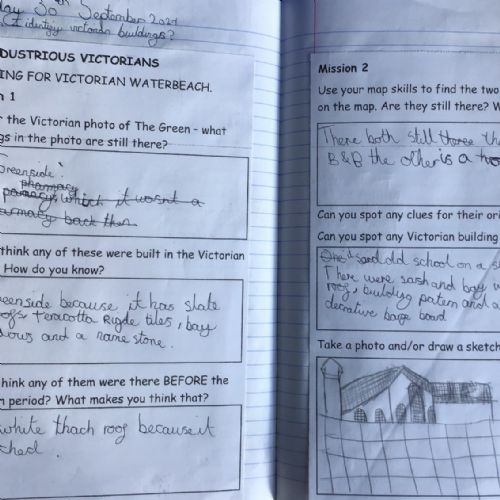 day 30th September 2024
I identify victorian buildings?
DUSTRIOUS VICTORIANS
ING FOR VICTORIAN WATERBEACH.
n 1
r the Victorian photo of The Green - what
gs in the photo are still there?
Greenside.
phamacy
which it wosnt a
armacy back then
think any of these were built in the Victorian
How do you know?
eenside because it has slate
oofs teracotta Rigde tiles, bay
dows and a name stone.
hink any of them were there BEFORE the
n period? What makes you think that?
white thach roof because it
ched.
Mission 2
Use your map skills to find the two
on the map. Are they still there? W
There both still there the
B&B the other is a
Can you spot any clues for their ori
Can you spot any Victorian building
One said old school on a
There were sash and bay w
roof, building patern and a
decrative barge board
Take a photo and/or draw a sketch